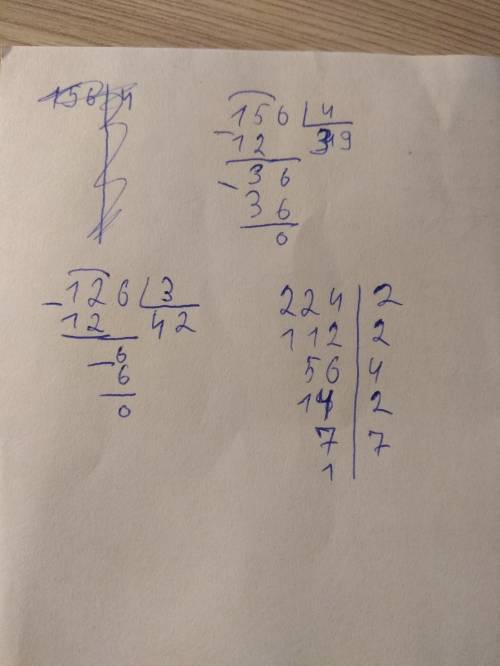 156 4
156 4
- 12 39
- 36
36
0
- 126 3
12 42
- 6
6
0
224 | 2
112 | 2
56 | 4
14 | 2
7 | 7
1 |